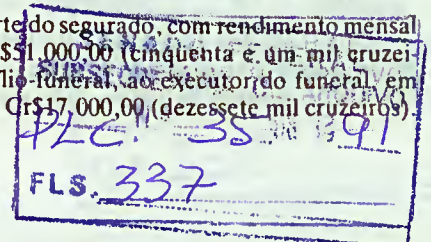 rte do segurado, com rendimento mensal
$51.000,00 (cinquenta e um mil cruzei-
lio-funeral, ao executor do funeral, em
Cr$17.000,00 (dezessete mil cruzeiros).
PLC. 35 91
FLS. 337